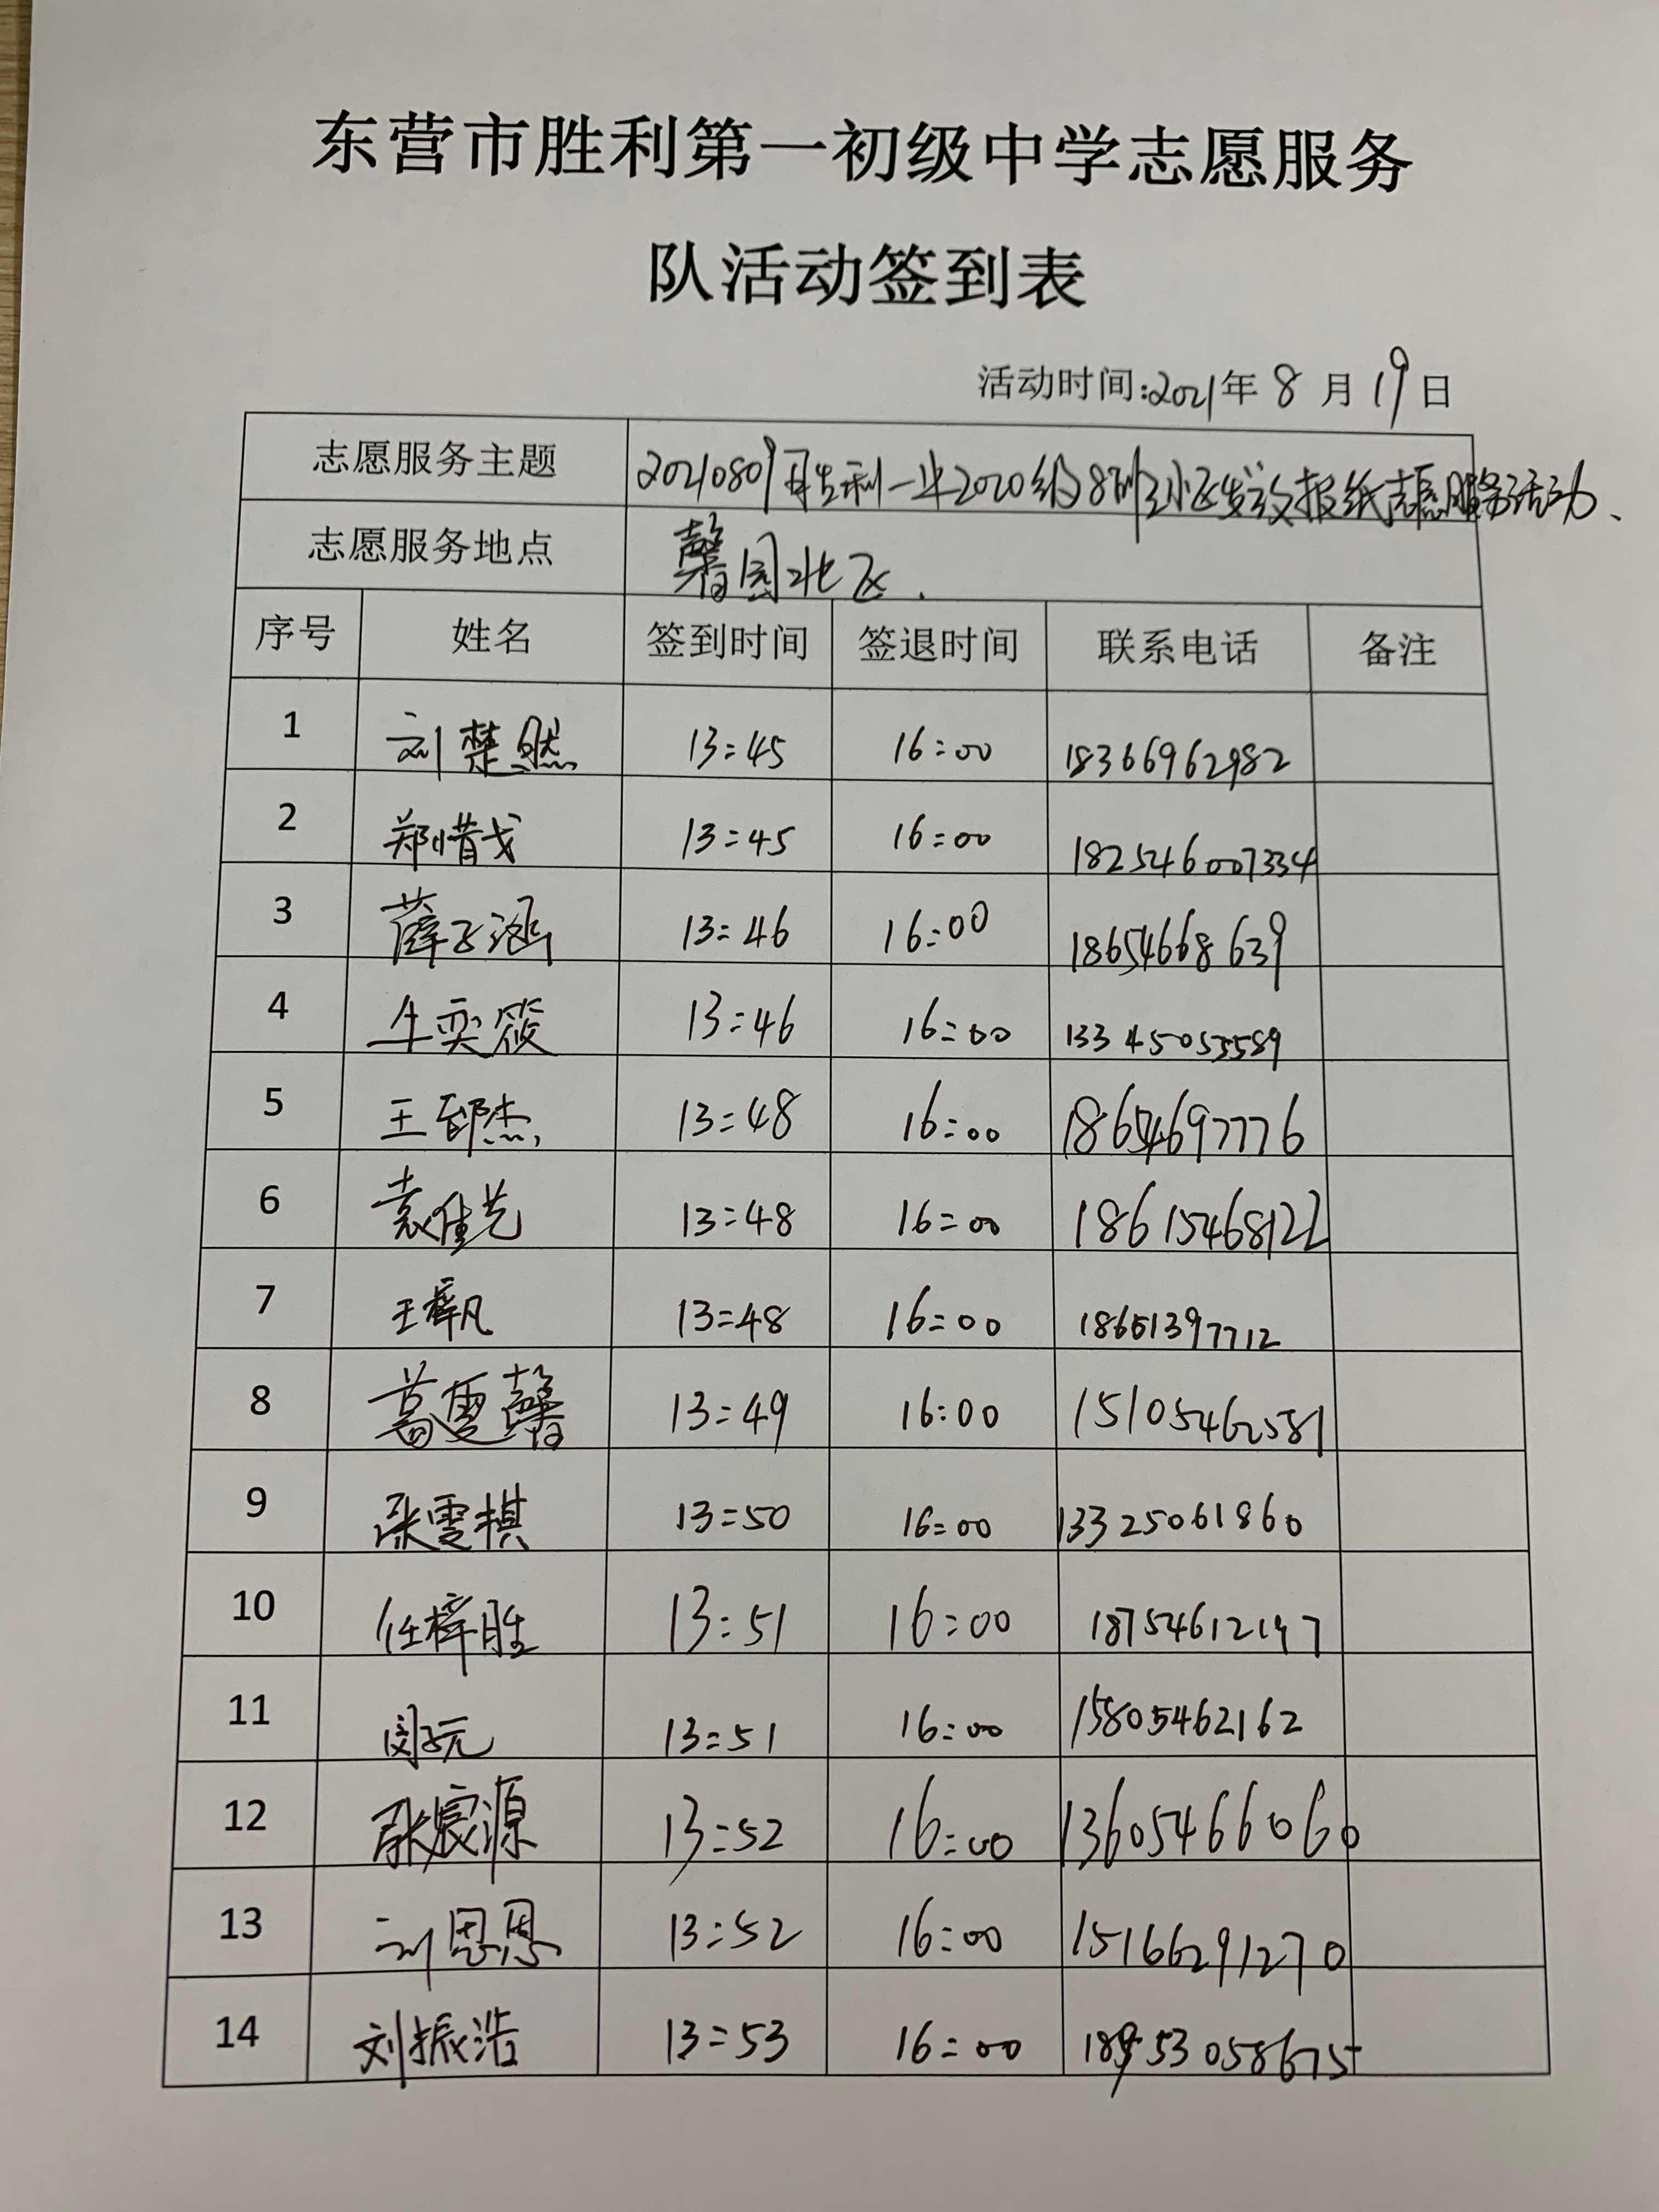 东营市胜利第一初级中学志愿服务
队活动签到表
活动时间:2021年8月19日
志愿服务主题 20210809胜利一中2020级8班小区发放报纸志愿服务活动、
志愿服务地点 馨园北区.
序号 姓名 签到时间 签退时间 联系电话 备注
1 刘楚然 13:45 16:00 18366962982
2 郑惜戈 13:45 16:00 182546007334
3 薛子涵 13:46 16:00 18654668639
4 牛奕筱 13:46 16:00 13345055589
5 王郚杰 13:48 16:00 18654697776
6 袁佳艺 13:48 16:00 18615468122
7 王梓凡 13:48 16:00 18661397712
8 葛雯馨 13:49 16:00 15105462581
9 张雯棋 13:50 16:00 13325061860
10 任梓胜 13:51 16:00 18754612197
11 闵子元 13:51 16:00 15805462162
12 张宸源 13:52 16:00 13605466060
13 刘恩恩 13:52 16:00 15166291270
14 刘振浩 13:53 16:00 18953058675